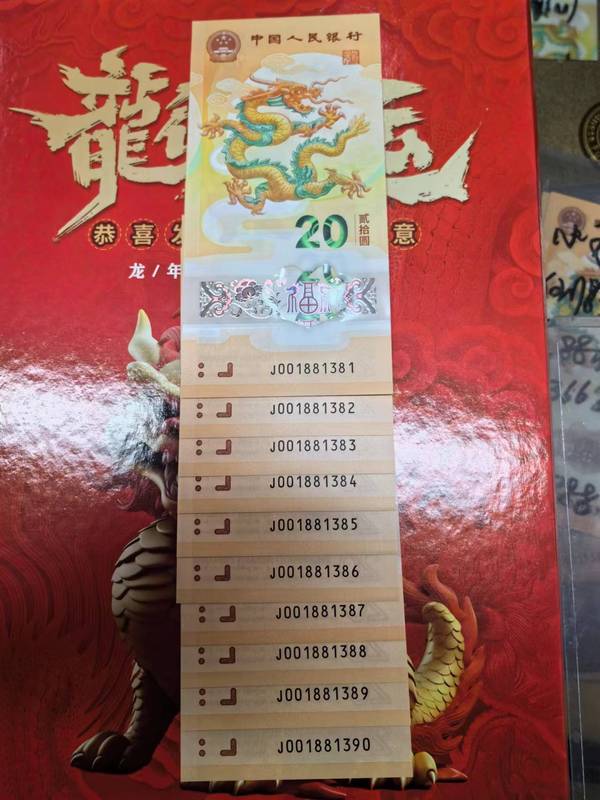 中国人民银行
龍
恭喜发
意
龙/年
20
贰拾圆
福
J001881381
J001881382
J001881383
J001881384
J001881385
J001881386
J001881387
J001881388
J001881389
J001881390